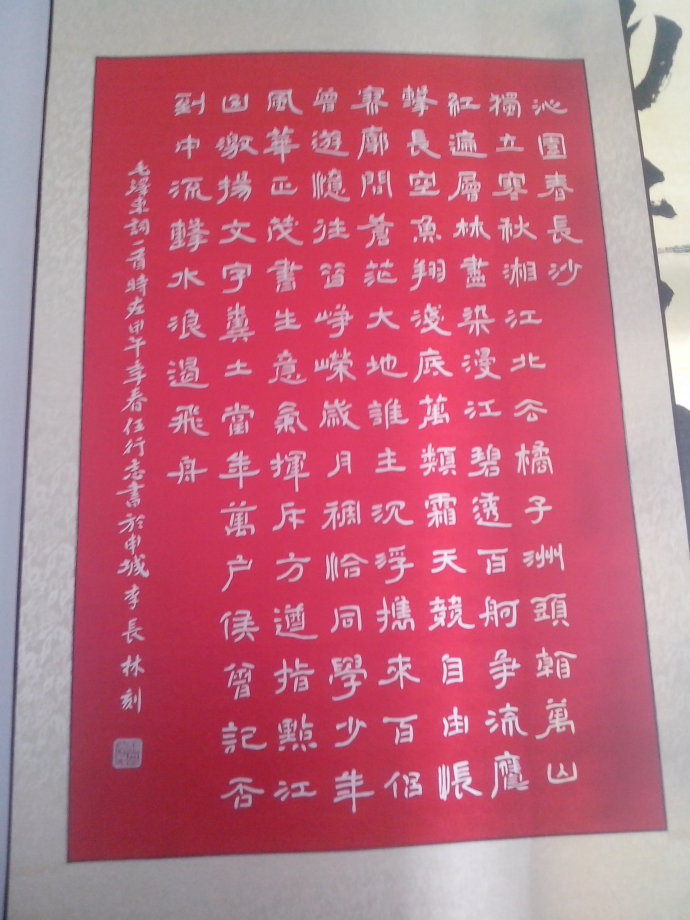 沁園春長沙
獨立寒秋湘江北去橘子洲頭看萬山
紅遍層林盡染漫江碧透百舸爭流鷹
擊長空魚翔淺底萬類霜天競自由悵
寥廓問蒼茫大地誰主沉浮攜來百侶
曾遊憶往昔崢嶸歲月稠恰同學少年
風華正茂書生意氣揮斥方遒指點江
山激揚文字糞土當年萬戶侯曾記否
到中流擊水浪遏飛舟
毛澤東詞一首時在甲午季春任行志書於申城李長林刻